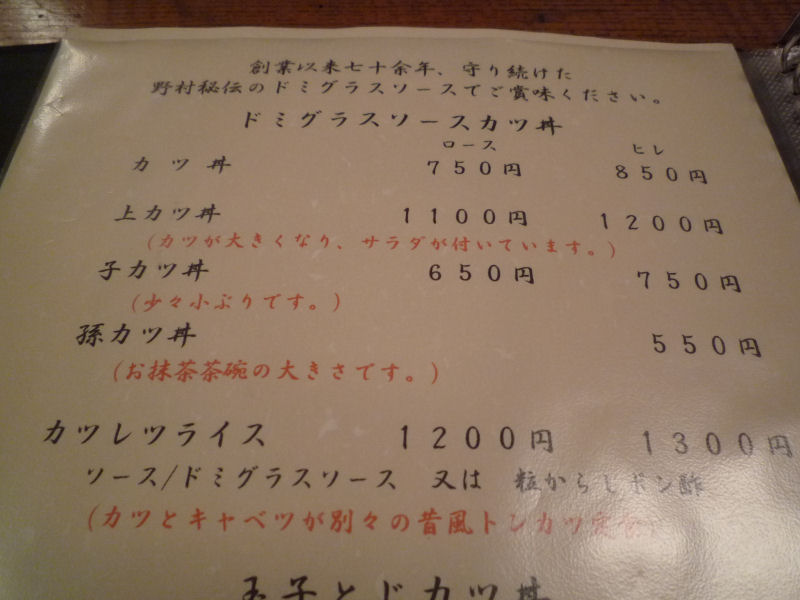 創業以来七十余年、守り続けた
野村秘伝のドミグラスソースでご賞味ください。
ドミグラスソースカツ丼
ロース ヒレ
カツ丼 750円 850円
上カツ丼 1100円 1200円
(カツが大きくなり、サラダが付いています。)
子カツ丼 650円 750円
(少々小ぶりです。)
孫カツ丼 550円
(お抹茶茶碗の大きさです。)
カツレツライス 1200円 1300円
ソース/ドミグラスソース 又は 粒からしポン酢
(カツとキャベツが別々の昔風トンカツ定食)
玉子とじカツ丼